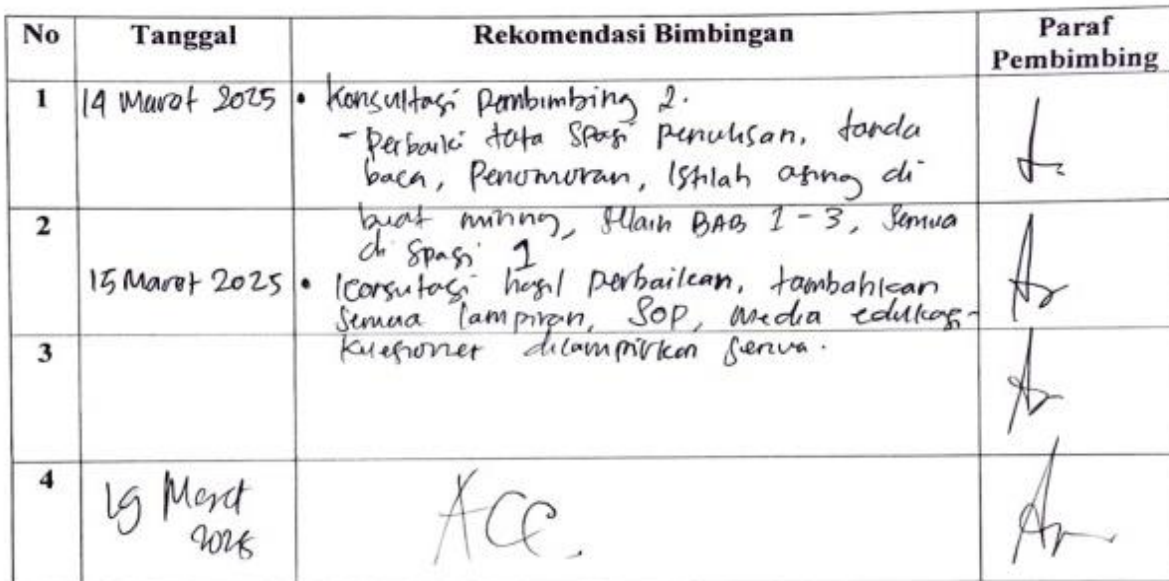 No Tanggal Rekomendasi Bimbingan Paraf Pembimbing
1 14 Maret 2025 • Konsultasi Pembimbing 2.
- Perbaiki tata spasi penulisan, tanda
baca, Penomoran, Istilah asing di
2 buat miring, selain BAB 1 - 3, semua
di spasi 1
15 Maret 2025 • Konsultasi hasil perbaikan, tambahkan
semua lampiran, SOP, media edukasi
3 kuesioner dilampirkan semua.
4 Maret ACC.
2025